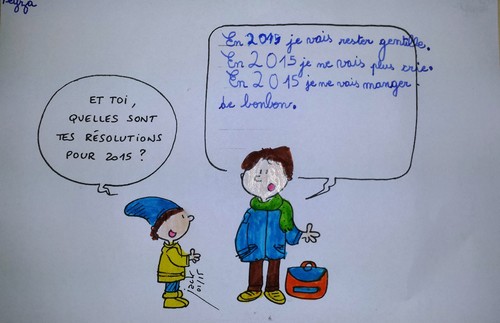 ET TOI,
QUELLES SONT
TES RÉSOLUTIONS
POUR 2015 ?
En 2015 je vais rester gentille.
En 2015 je ne vais plus crie.
En 2015 je ne vais manger
de bonbon.
jack
01/15